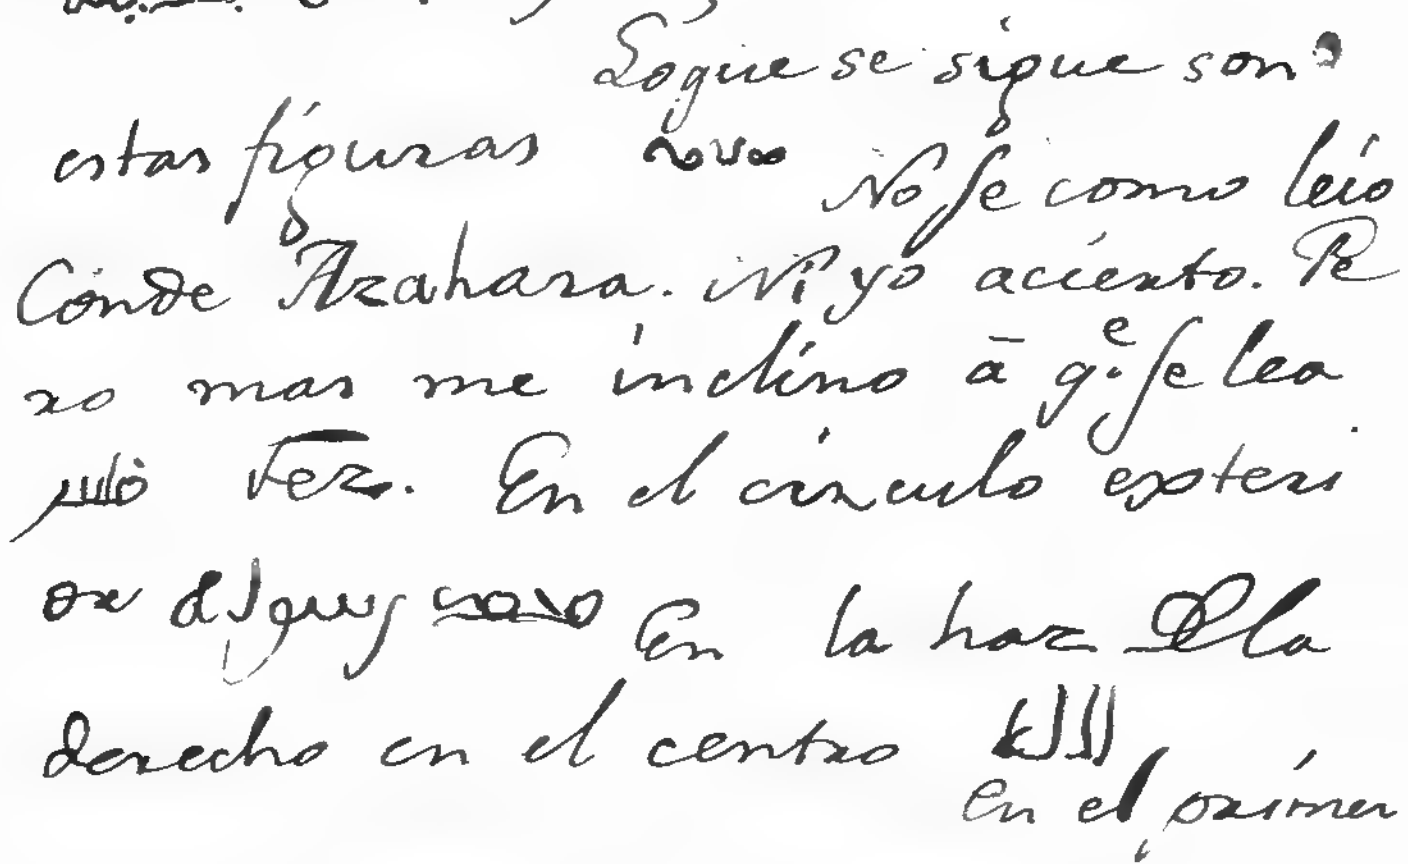 Loque se sigue son
estas figuras No se como leio
Conde Azahara. Ni yo acierto. Pe
ro mas me inclino ā q.e se lea
Fez. En el circulo exteri
or En la haz Dla
derecho en el centro
en el primer